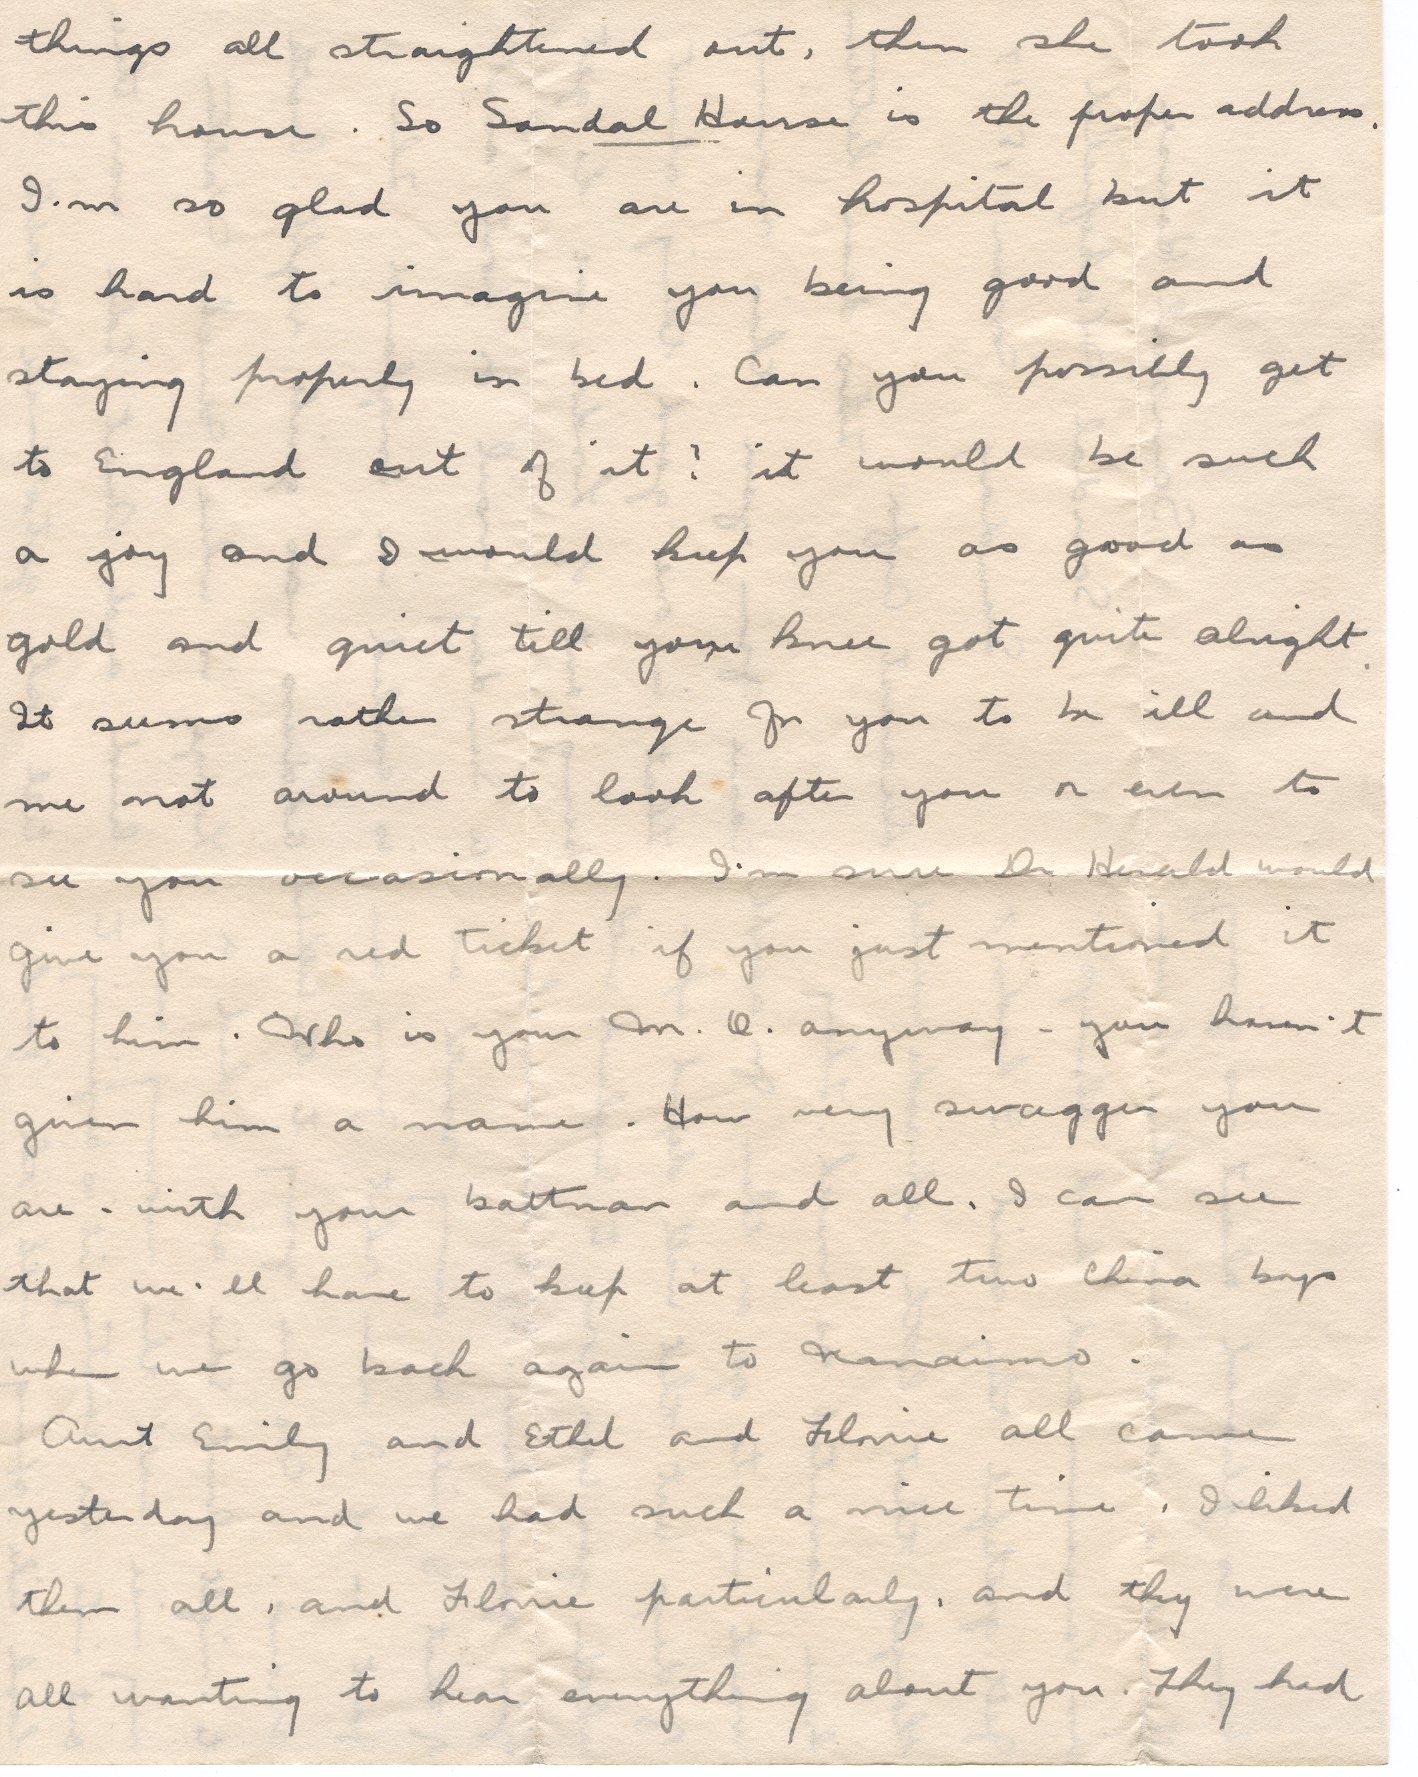 things all straightened out, then she took
this house. So Sandal House is the proper address.
I'm so glad you are in hospital but it
is hard to imagine you being good and
staying properly in bed. Can you possibly get
to England out of it? it would be such
a joy and I would keep you as good as
gold and quiet till your knee got quite alright.
It seems rather strange for you to be ill and
me not around to look after you or even to
see you occasionally. I'm sure Dr Herald would
give you a red ticket if you just mentioned it
to him. Who is your M. O. anyway - you haven't
given him a name. How very swagger you
are - with your battman and all. I can see
that we'll have to keep at least two China boys
when we go back again to Nanaimo.
Aunt Emily and Ethel and Florrie all came
yesterday and we had such a nice time. I liked
them all, and Florrie particularly, and they were
all wanting to hear everything about you. They had